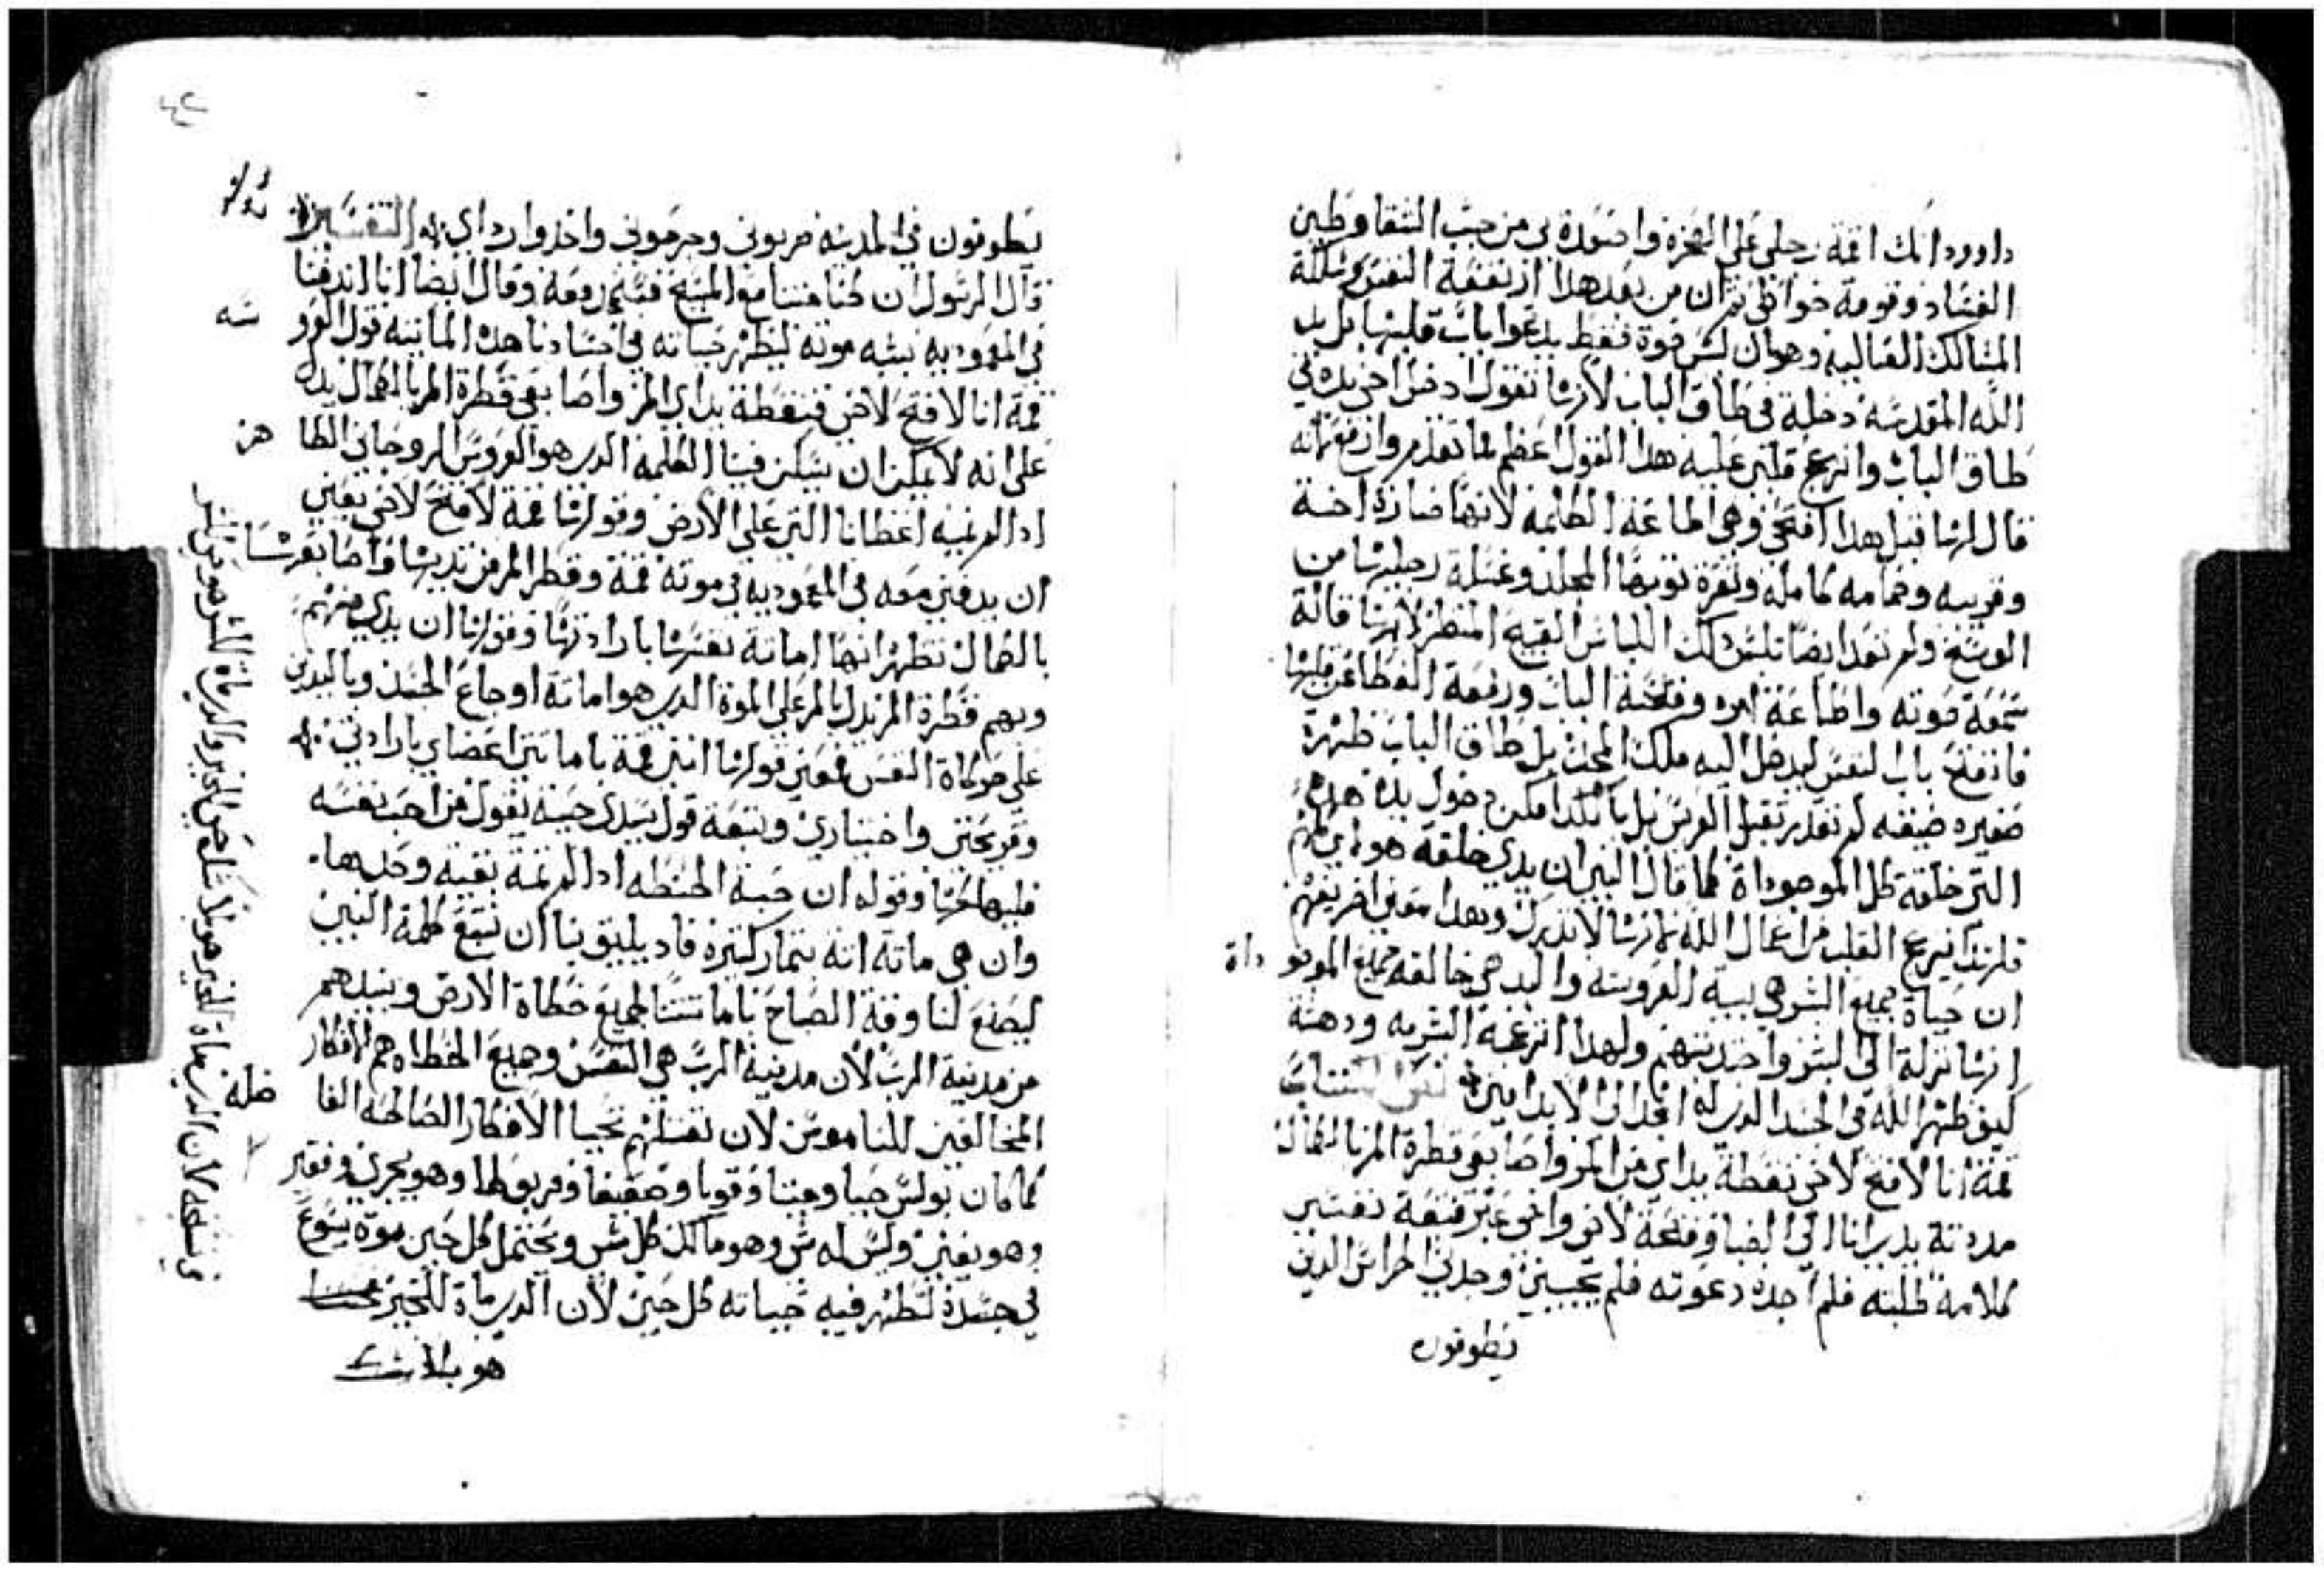 داوود انك اقمة رجلي على الصخره واصعدة بي من جب الشقا وطين
الفساد وقومة خواطي ثم ان من بعد هدا ارتفعة النفس وسللة
المسالك العاليه وهو ان ليس قوة فقط يدعوا باب قلبها بل يد
الله المقدسه دخلة في طاق الباب لانها تقول ادخل اخي يده في
طاق الباب وانزعج قلبي عليه هدا القول اعظم مما تقدم وارفع لانه
قال لها قبل هدا افتحي وهي اطاعة الكلمه لانها صارة اخة
وقريبه وحمامه كامله ونزعة توبها الجلد وغسلة رجليها من
الوسخ ولم تعد ايضا تلبس دلك اللباس القبيح المنظر لانها قالة
سمعة صوته واطاعة امره وفتحة الباب ورفعة الغطا عن قلبها
فانفتح باب النفس ليدخل اليه ملك المجد بل طاق الباب ظهرة
صغيره ضيقه لم تقدر تقبل العريس بل بالكد امكن دخول يده هده
التي خلقة كل الموجوداة كما قال النبي ان يدي خلقة هولاي كلهم
فلهدا انزعج القلب من اعمال الله لانها لا تدرك وبهدا معني اخر يفهم
ان حياة جميع البشر هي بيية العروسه واليد هي خالقه جميع الموجو داة
انها نزلة الى البشر واخد منهم ولهدا انزعجة البشريه ودهشة
كيف ظهر الله في الجسد الدي له المجد الى الابد امين
قمة انا لافتح لاخي نقطة يداي من المر واصابعي قطرة المر بالكمال
مددة يديا انا الي الضبا وفتحة لاخي واخي عبر فتبعة نفسي
كلامه طلبته فلم اجده دعوته فلم يجيبني وجدني الحراس الدين
يطوفون
يطوفون في المدينه ضربوني وجرحوني واخدوا رداي التفسير
قال الرسول ان كنا متنا مع المسيح فسنحيا معه وقال ايضا اننا اندفنا
في المعموديه بشبه موته لتظهر حياته في اجسادنا هده المايته قول العرو سه
قمة انا لافتح لاخي فنقطة يداي المر واصابعي قطرة المر بالكمال يدل
على انه لا يمكن ان يسكن فينا الكلمه الدي هو العروس الروحاني الطا هر
اد لم نميت اعضانا التي على الارض وقولها قمة لافتح لاخي يعني
ان يدفني معه في المعموديه في موته قمة وقطر المر من يديها واصابعها
بالكمال تظهر انها اماتة نفسها بارادتها وقولها ان يدي منهم
وبهم قطرة المر تدل بالمر على الموة الدي هو اماتة اوجاع الجسد وباليدين
على حركاة النفس فمعني قولها انني قمة باماتتي اعضاي بارادتي
وقريحتي واختياري وتبعة قول سيدي حيث يقول من احب نفسه
فليهلكها وقوله ان حبة الحنطه ادا لم تمة بقية وحدها
وان هي ماتة اتة بتمار كتيرة فاد يليق بنا ان نتبع كلمة النبي
ليصنع لنا وقة الصباح باماتتنا لجميع خطاة الارض ونبيدهم
من مدينة الرب لان مدينة الرب هي النفس وجميع الخطاه هم الافكار
المخالفين للناموس لان بقتلهم تحيا الافكار الصالحه الفا ضله
كما كان بولس حيا وميتا وقويا وضعيفا ومربوطا وهو يجري وفقير
وهو يغني وليس له شي وهو مالك كل شي ويحتمل كل حين موة يسوع
في جسده لتظهر فيه حياته كل حين لان الدي ماة للخير